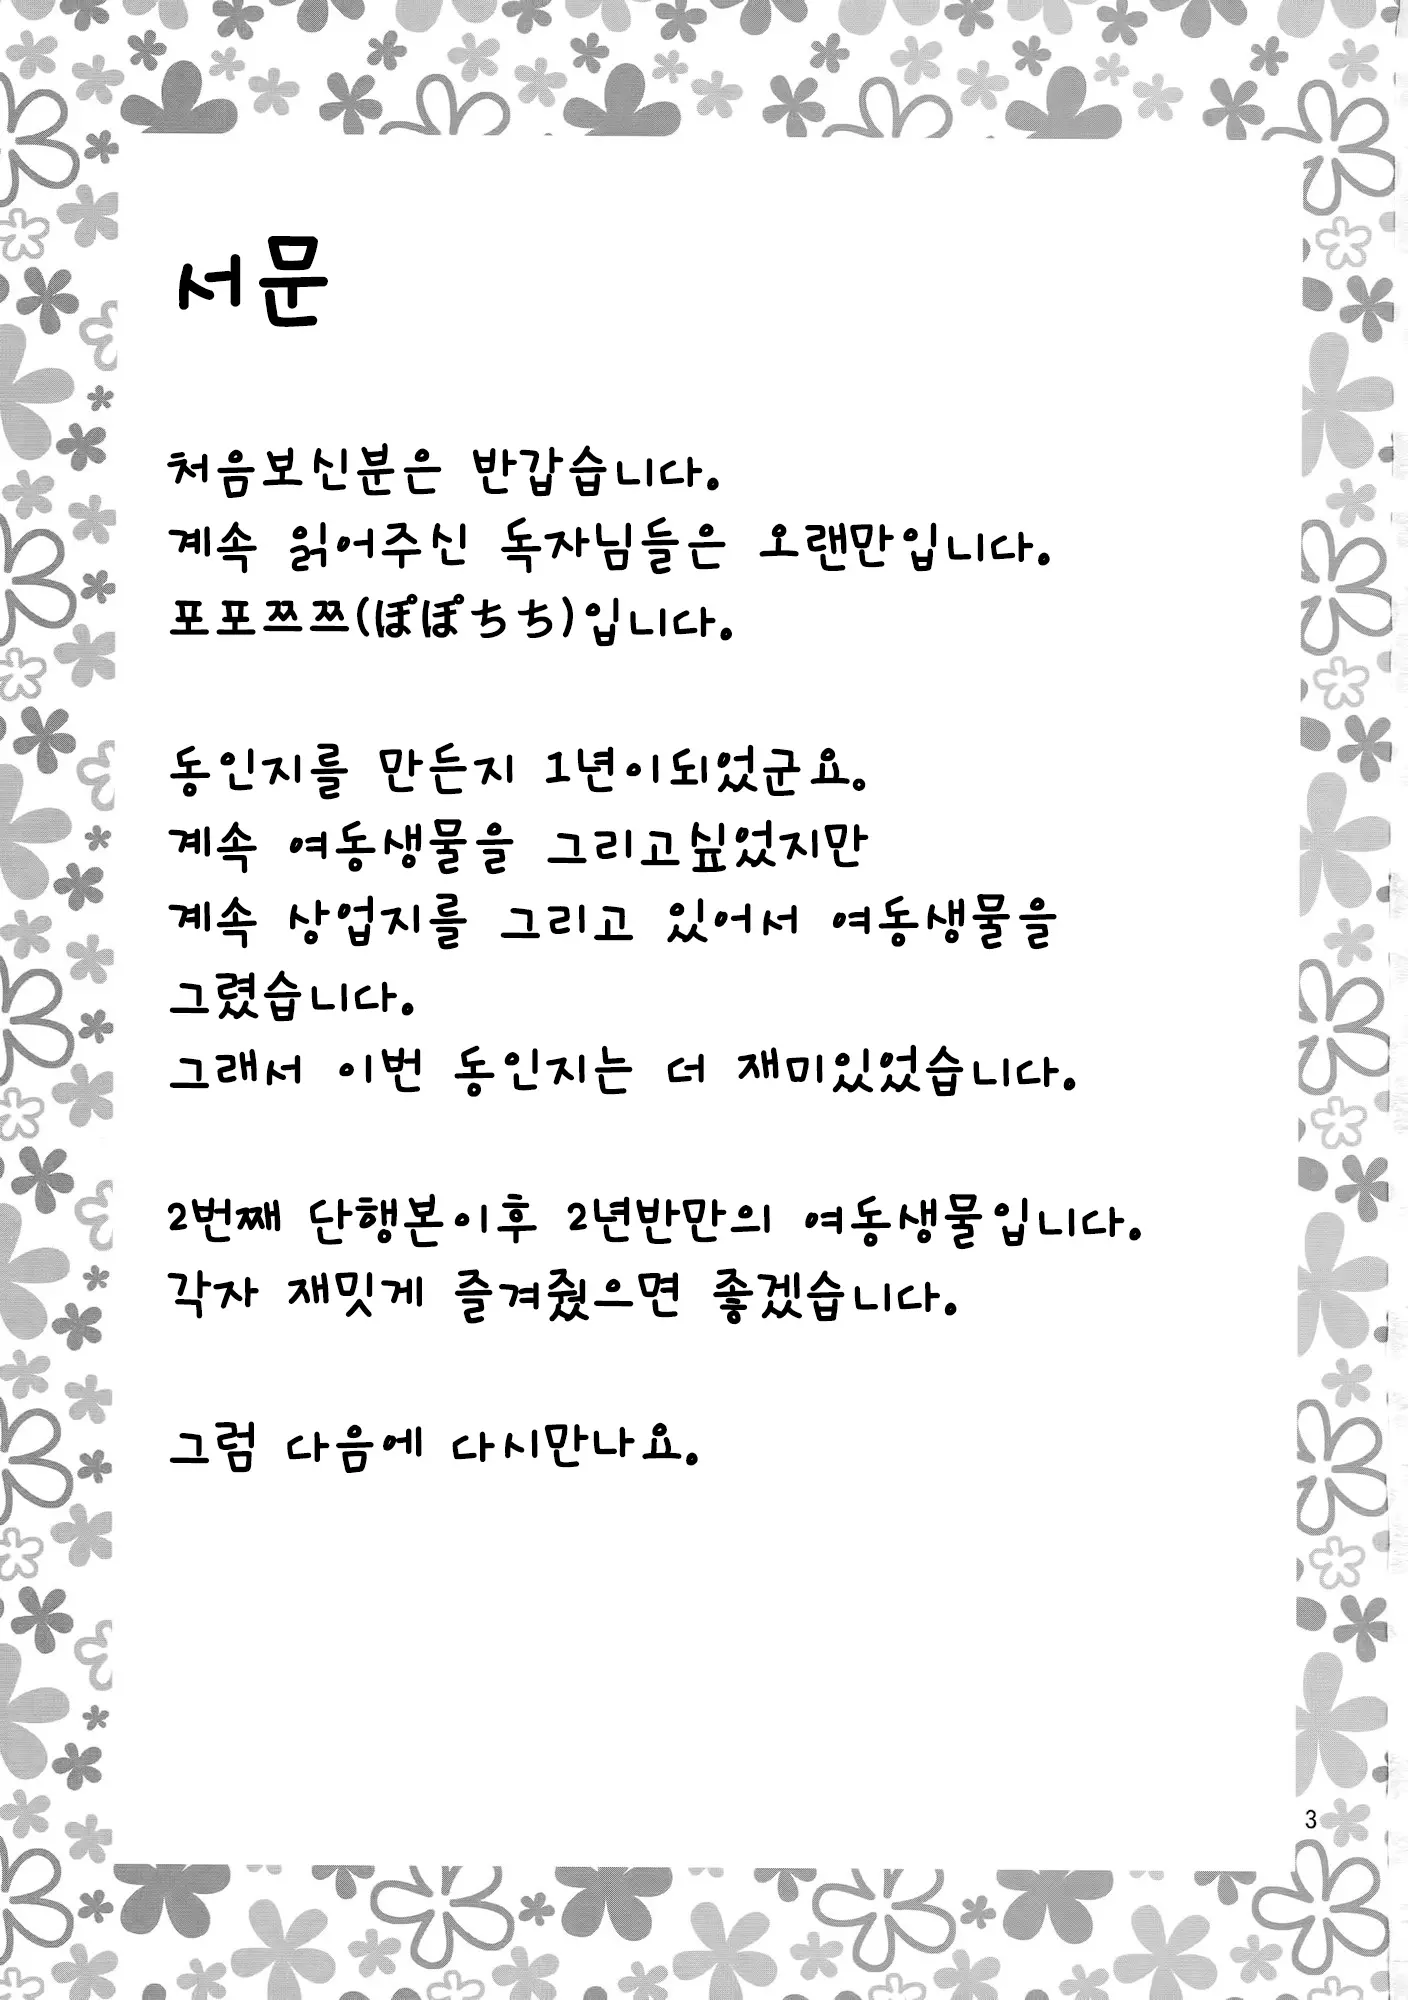 서문
처음보신분은 반갑습니다.
계속 읽어주신 독자님들은 오랜만입니다.
포포쯔쯔(ぽぽちち)입니다.
동인지를 만든지 1년이되었군요.
계속 여동생물을 그리고싶었지만
계속 상업지를 그리고 있어서 여동생물을
그렸습니다.
그래서 이번 동인지는 더 재미있었습니다.
2번째 단행본이후 2년반만의 여동생물입니다.
각자 재밋게 즐겨줬으면 좋겠습니다.
그럼 다음에 다시만나요.
3